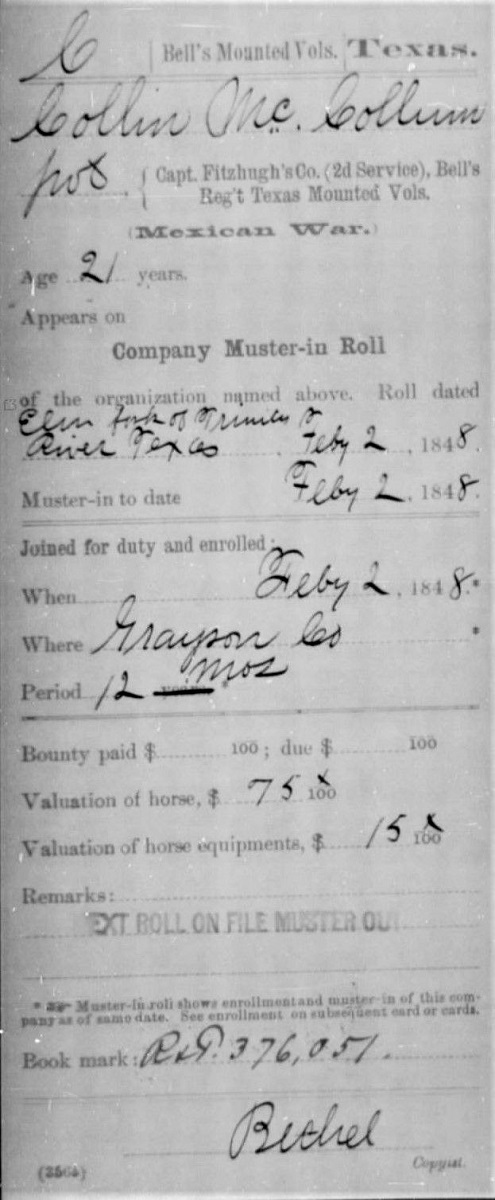 C | Bell's Mounted Vols. | Texas.
Collin Mc. Collum
pvt { Capt. Fitzhugh's Co. (2d Service), Bell's
Reg't Texas Mounted Vols.
(Mexican War.)
Age 21 years.
Appears on
Company Muster-in Roll
of the organization named above. Roll dated
Elm fork of Trinity
River Texas Feby 2, 1848.
Muster-in to date Feby 2, 1848.
Joined for duty and enrolled:
When Feby 2, 1848.*
Where Grayson Co *
Period 12 mos years.*
Bounty paid $ 100; due $ 100
Valuation of horse, $ 75 x/100
Valuation of horse equipments, $ 15 x/100
Remarks:
NEXT ROLL ON FILE MUSTER OUT
* Muster-in roll shows enrollment and muster-in of this com-
pany as of same date. See enrollment on subsequent card or cards.
Book mark: R & P. 376,051.
Bethel
(3565) Copyist.